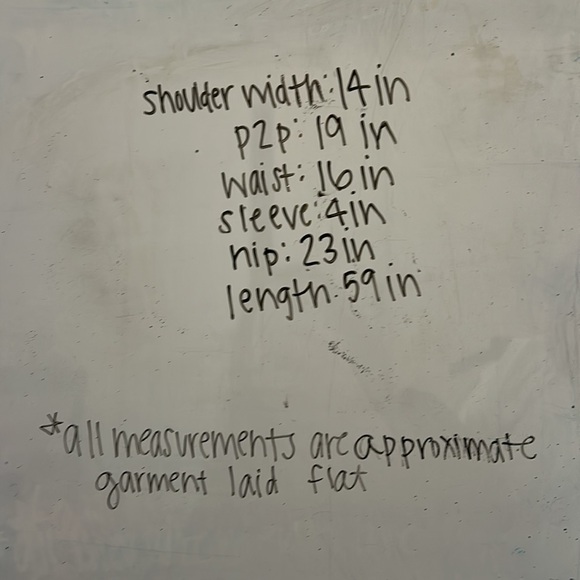 shoulder width: 14 in
p2p: 19 in
waist: 16 in
sleeve: 4 in
hip: 23 in
length: 59 in
*all measurements are approximate
garment laid flat